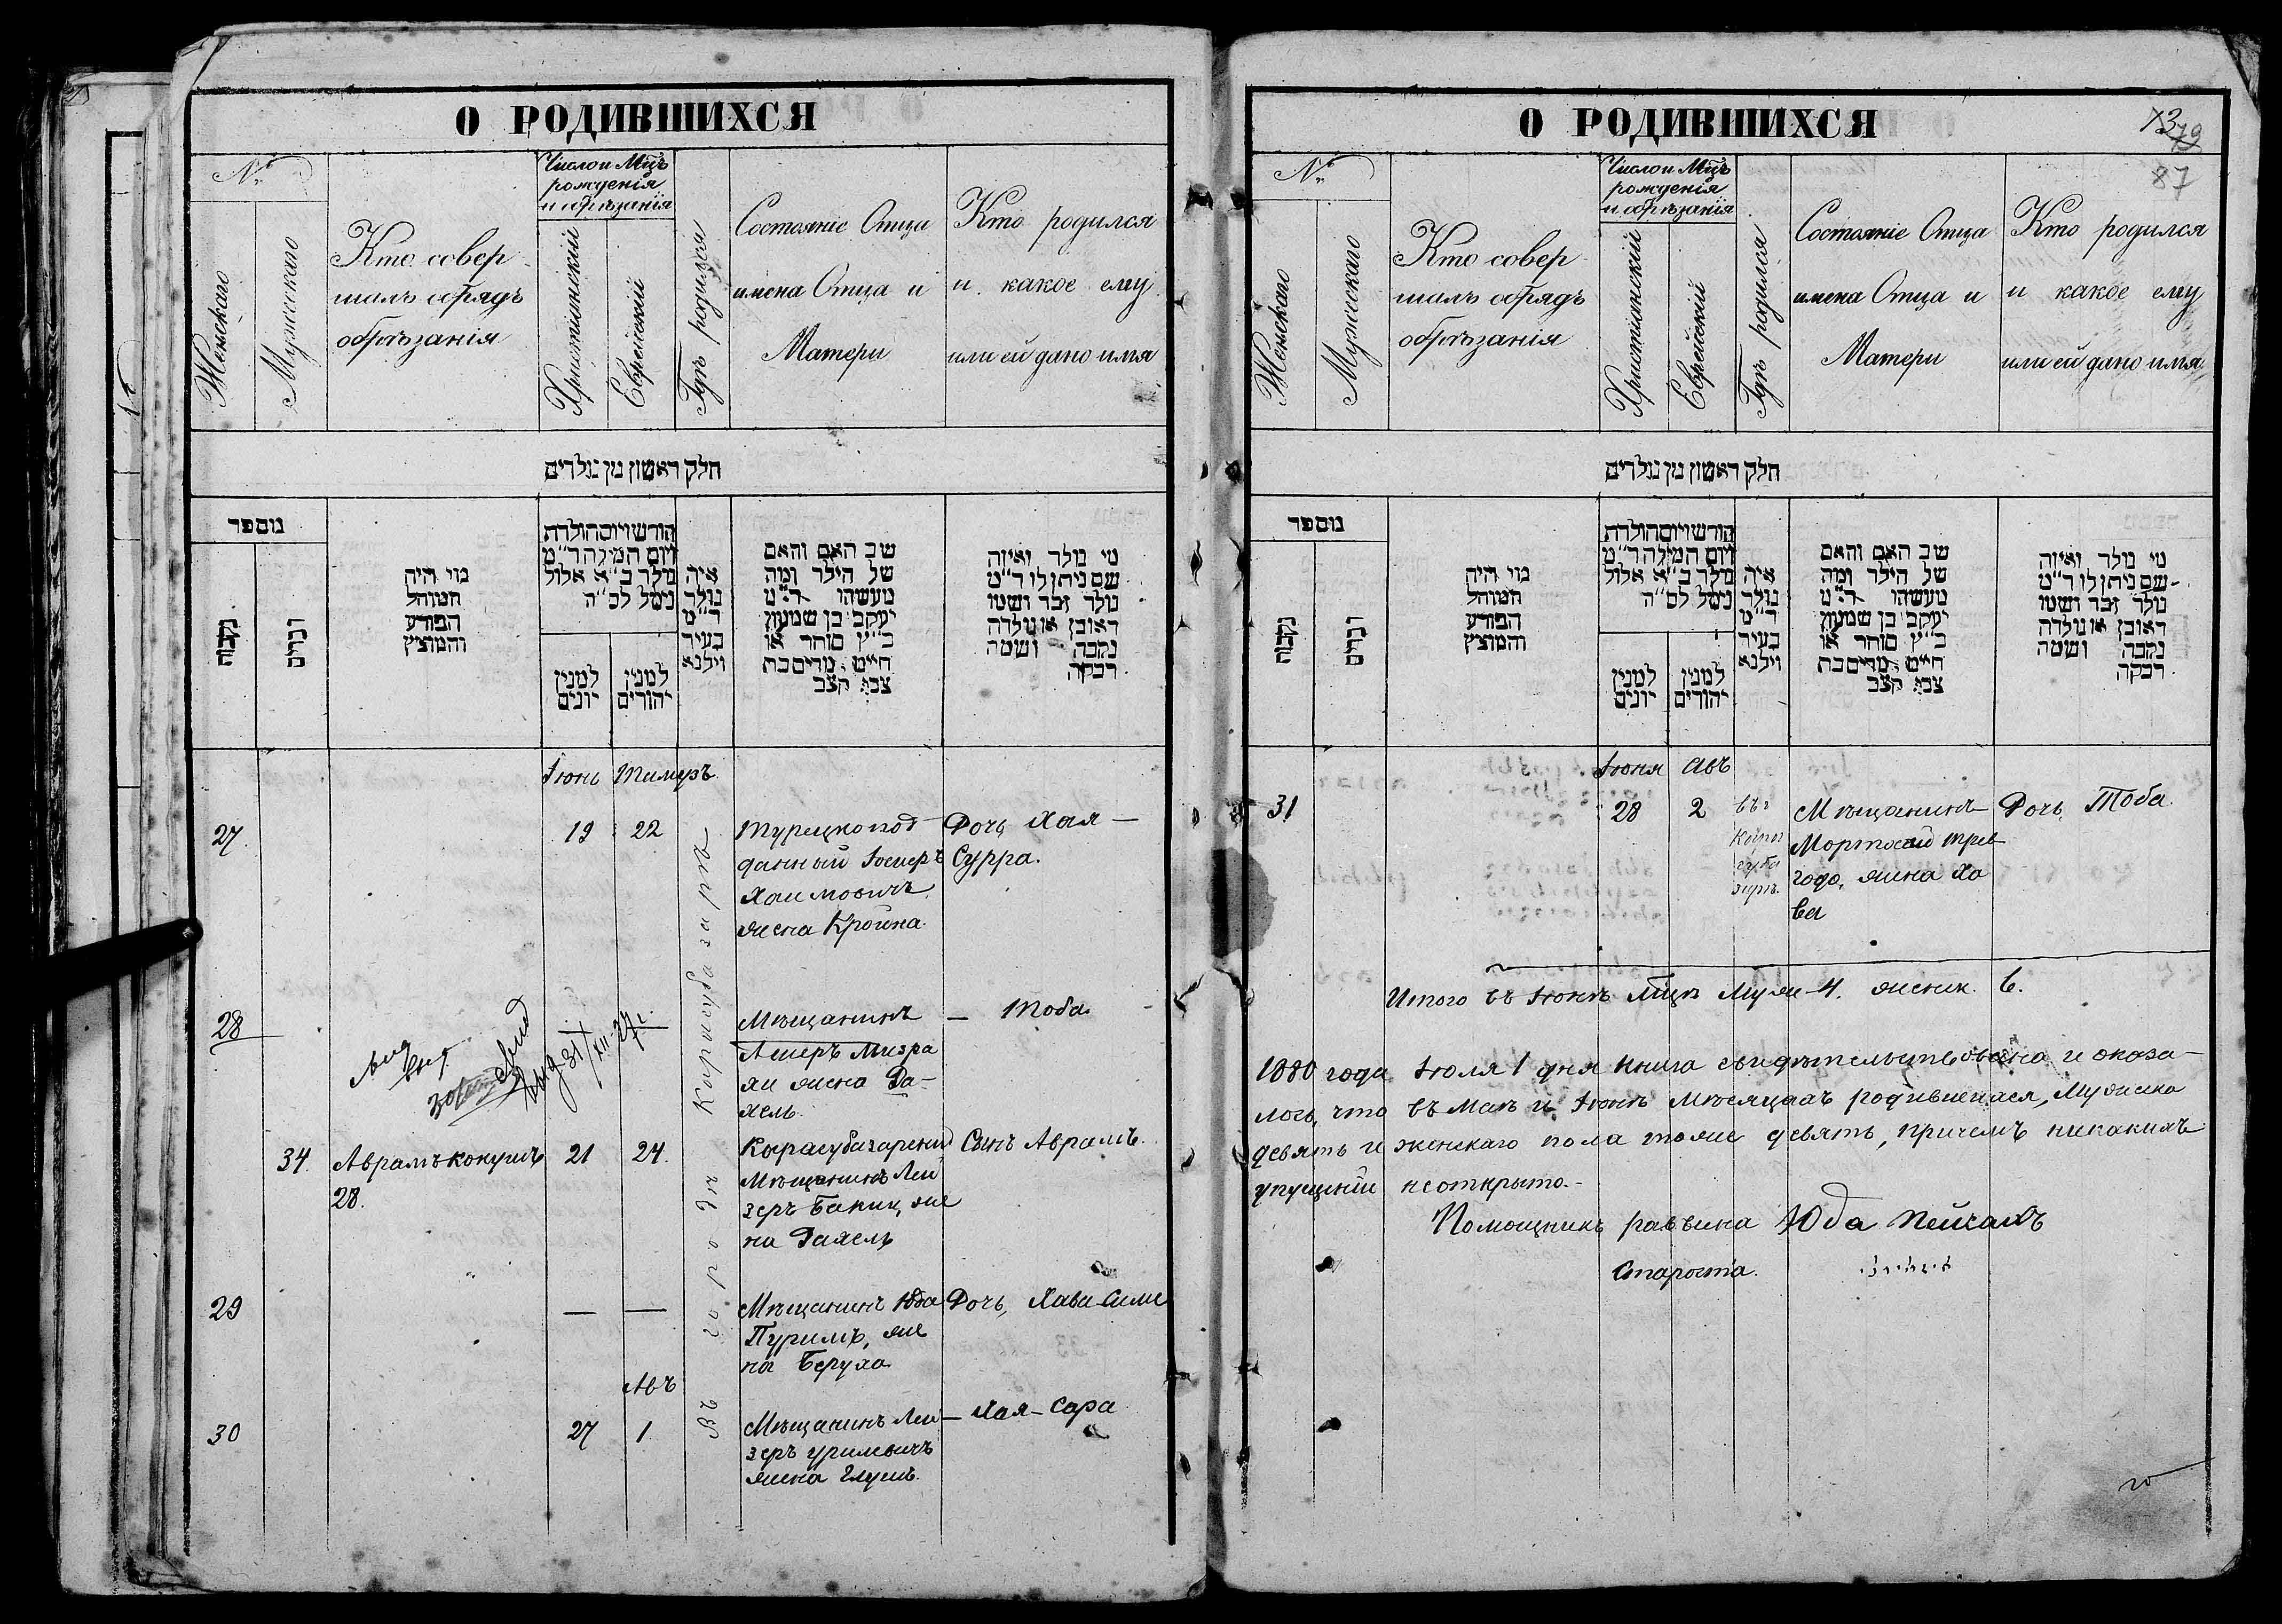 О РОДИВШИХСЯ
№
Женскаго
Мужескаго
Кто совер
шалъ обрядъ
обрѣзанія
Число и Мѣць
рожденія
и обрѣзанія
Христіянскій
Еврейскій
Гдѣ родился
Состояніе Отца
имена Отца и
Матери
Кто родился
и какое ему
или ей дано имя
חלק ראשון מן נולדים
מספר
נקבות
זכרים
מי היה
המוהל
הפורע
והמוצץ
חודש ויום הולדת
ויום המילה ד״מ
נולד ב״א אלול
נימל לס״ה
למנין
יונים
למנין
יהודים
איה
נולד
ד״מ
בעיר
וילנא
שב האם והאם
של הילד ומה
מעשהו ד״מ
יעקב בן שמעון
כ״ץ סוחר או
חייט מרים בת
צבי קצב
מי נולד ואיזה
שם ניתן לו ד״מ
נולד זכר ושמו
ראובן או נולדה
נקבה ושמה
רבקה
Іюнь Тамузъ
27.
19 22
Турецкопод
данный Іосифъ
Хаимовичъ
жена Кройна.
Дочь Хая —
Сурра.
Въ городѣ Карасубазарѣ
28
Мѣщанинъ
Ашеръ Мизра
хи жена Ра-
хель
— Тоба
34.
Аврамъ Кокушъ
28.
21 24.
Карасубазарский
Мѣщанинъ Лей
зеръ Бакши, же
на Рахель
Сынъ Аврамъ.
29
— —
Мѣщанинъ Юда
Пуримъ, же
на Беруха
Дочь, Хава-Сима
Авъ
30
27 1
Мѣщанинъ Лей
зеръ Уриловичъ
жена Глушъ.
— Хая-Сара
О РОДИВШИХСЯ
73
79
87
№
Женскаго
Мужескаго
Кто совер
шалъ обрядъ
обрѣзанія
Число и Мѣць
рожденія
и обрѣзанія
Христіянскій
Еврейскій
Гдѣ родился
Состояніе Отца
имена Отца и
Матери
Кто родился
и какое ему
или ей дано имя
חלק ראשון מן נולדים
מספר
נקבות
זכרים
מי היה
המוהל
הפורע
והמוצץ
חודש ויום הולדת
ויום המילה ד״מ
נולד ב״א אלול
נימל לס״ה
למנין
יונים
למנין
יהודים
איה
נולד
ד״מ
בעיר
וילנא
שב האם והאם
של הילד ומה
מעשהו ד״מ
יעקב בן שמעון
כ״ץ סוחר או
חייט מרים בת
צבי קצב
מי נולד ואיזה
שם ניתן לו ד״מ
נולד זכר ושמו
ראובן או נולדה
נקבה ושמה
רבקה
Іюня Авъ
31
28 2
Мѣщанинъ
Мортхай Трев
года, жена Ха
ва
Дочь, Тоба.
Итого въ Іюнѣ мѣцѣ Муж-4. женск. 6.
1880 года Іюля 1 дня книга свидѣтельствована и оказа-
лось, что въ Маѣ и Іюнѣ мѣсяцахъ родившихся, мужска
девять и женскаго пола тоже девять, причемъ никакихъ
упущеній не открыто.-
Помощникъ раввина Юда Пейсахъ
Староста.